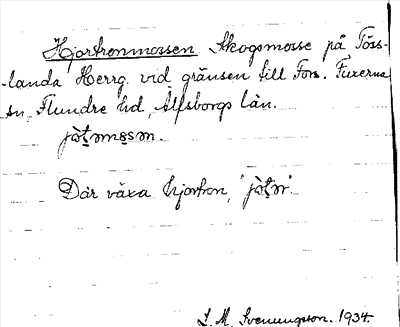 Hjortronmossen Skogsmosse på Töss-
landa Herrg. vid gränsen till Fors. Fuxerna
sn, Flundre hd, Älfsborgs län.
Där växa hjortron,
S. M. Svenungsson. 1934.